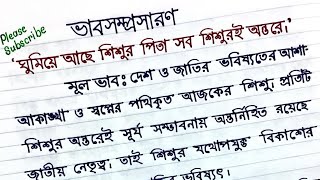 Please
Subscribe
ভাবসম্প্রসারণ
'ঘুমিয়ে আছে শিশুর পিতা সব শিশুরই অন্তরে।'
মূল ভাব: দেশ ও জাতির ভবিষ্যতের আশা-
আকাঙ্খা ও স্বপ্নের পথিকৃত আজকের শিশু। প্রতিটি
শিশুর অন্তরেই সূর্য সম্ভাবনায় অন্তর্নিহিত রয়েছে
জাতীয় নেতৃত্ব। তাই শিশুর যথোপযুক্ত বিকাশের
ভবিষ্যৎ।